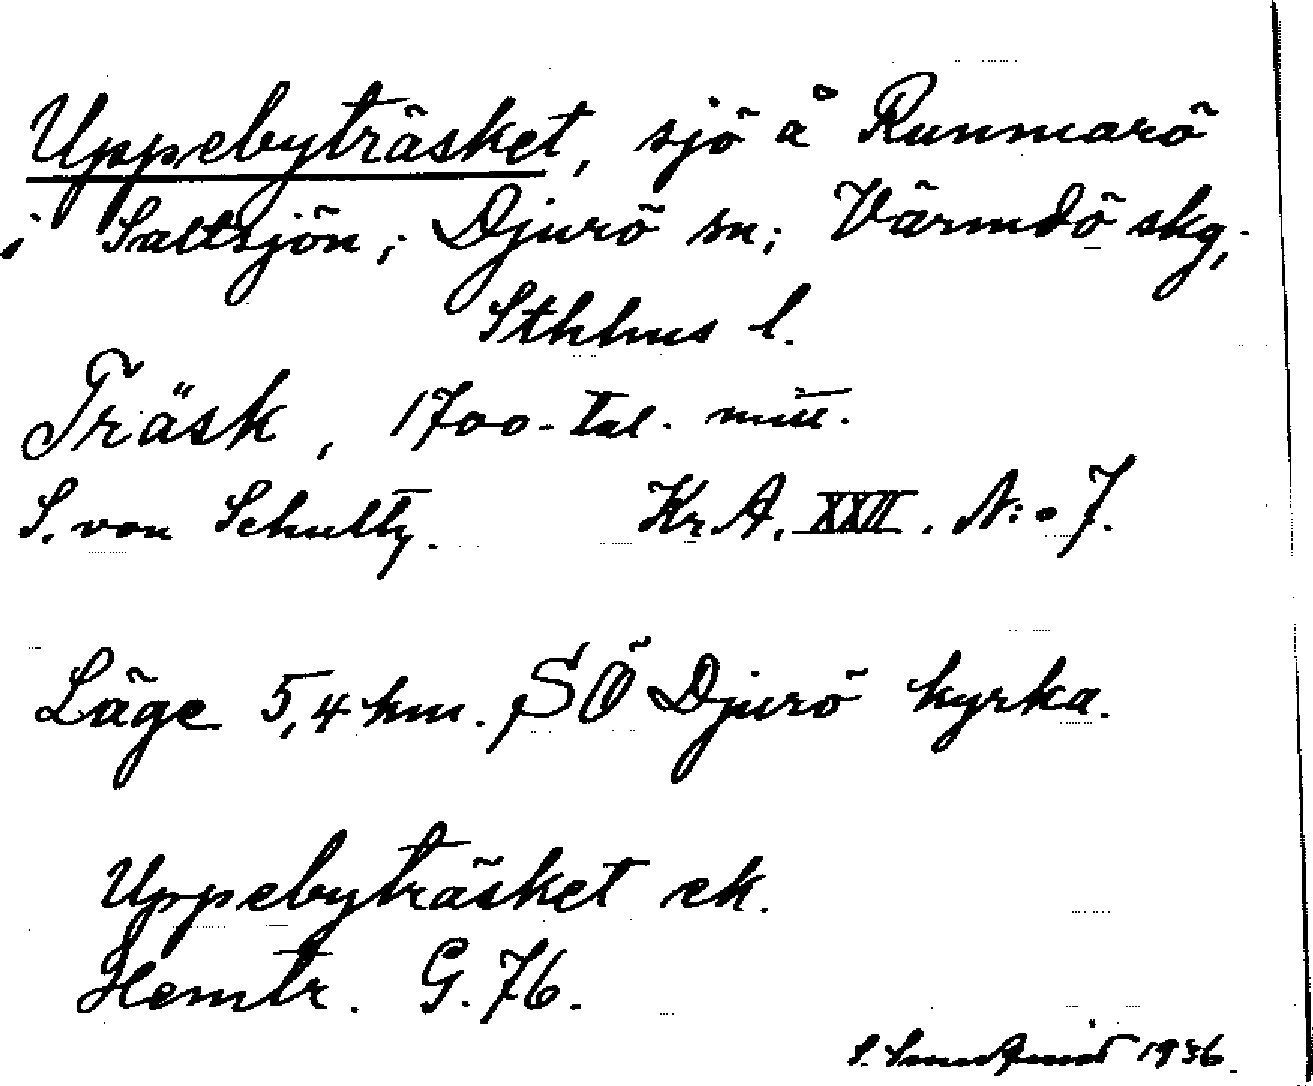 Uppebyträsket, sjö å Runmarö
i Saltsjön; Djurö sn; Värmdö skg,
Sthlms l.
Träsk, 1700-tal. mitt.
S. von Schultz. Kr. A. XXII. N:o 7.
Läge 5,4 km. SÖ Djurö kyrka.
Uppebyträsket ek.
Hemtr. G. 76.
S. 1936.